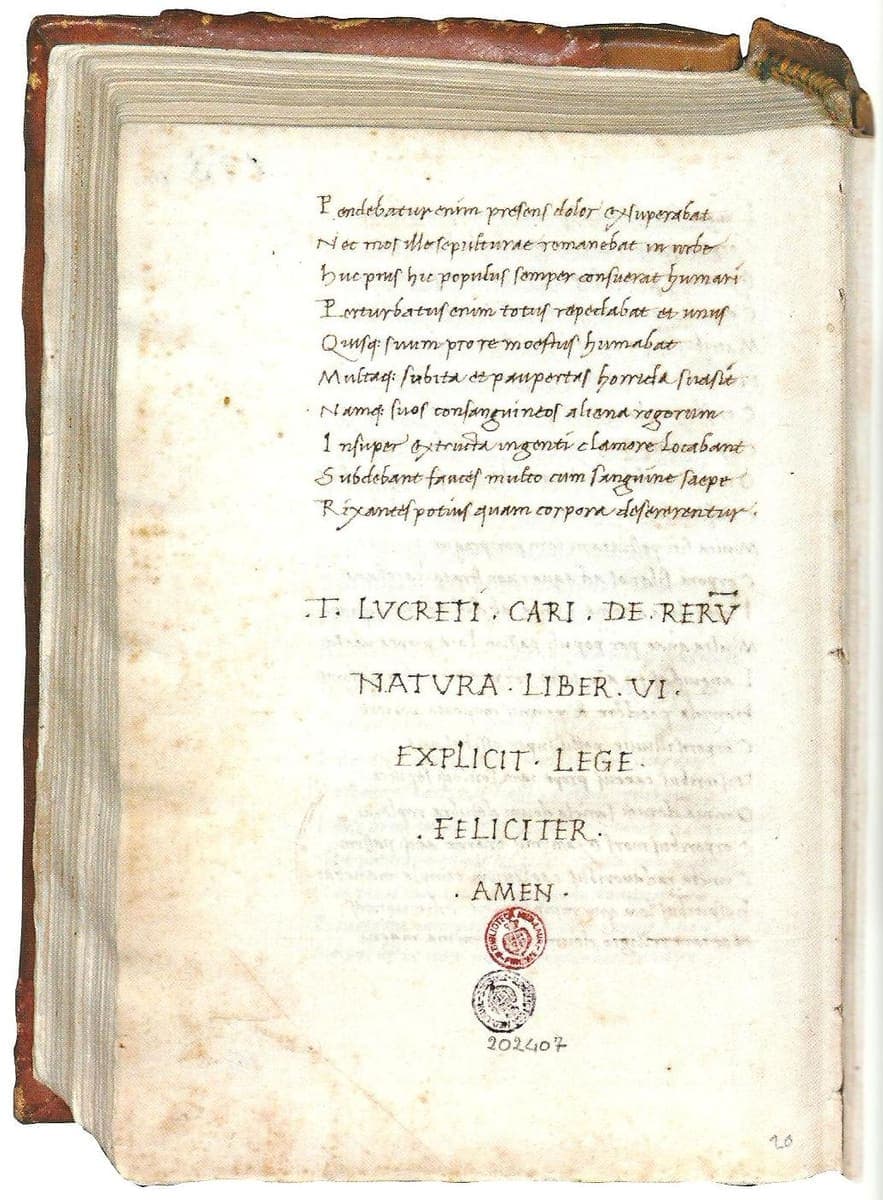 Pendebatur enim presens dolor exsuperabat
Nec mos ille sepulturae remanebat in urbe
Huc prius hic populus semper consuerat humari
Perturbatus enim totus repedabat et unus
Quisq; suum pro re moestus humabat
Multaq; subita et paupertas horrida suasit
Namq; suos consanguineos aliena rogorum
Insuper extructa ingenti clamore locabant
Subdebant fauces multo cum sanguine saepe
Rixantes potius quam corpora desererentur.
.T. LVCRETI . CARI . DE . RERV̄
NATURA . LIBER . VI .
EXPLICIT . LEGE .
. FELICITER .
. AMEN .
202407
20